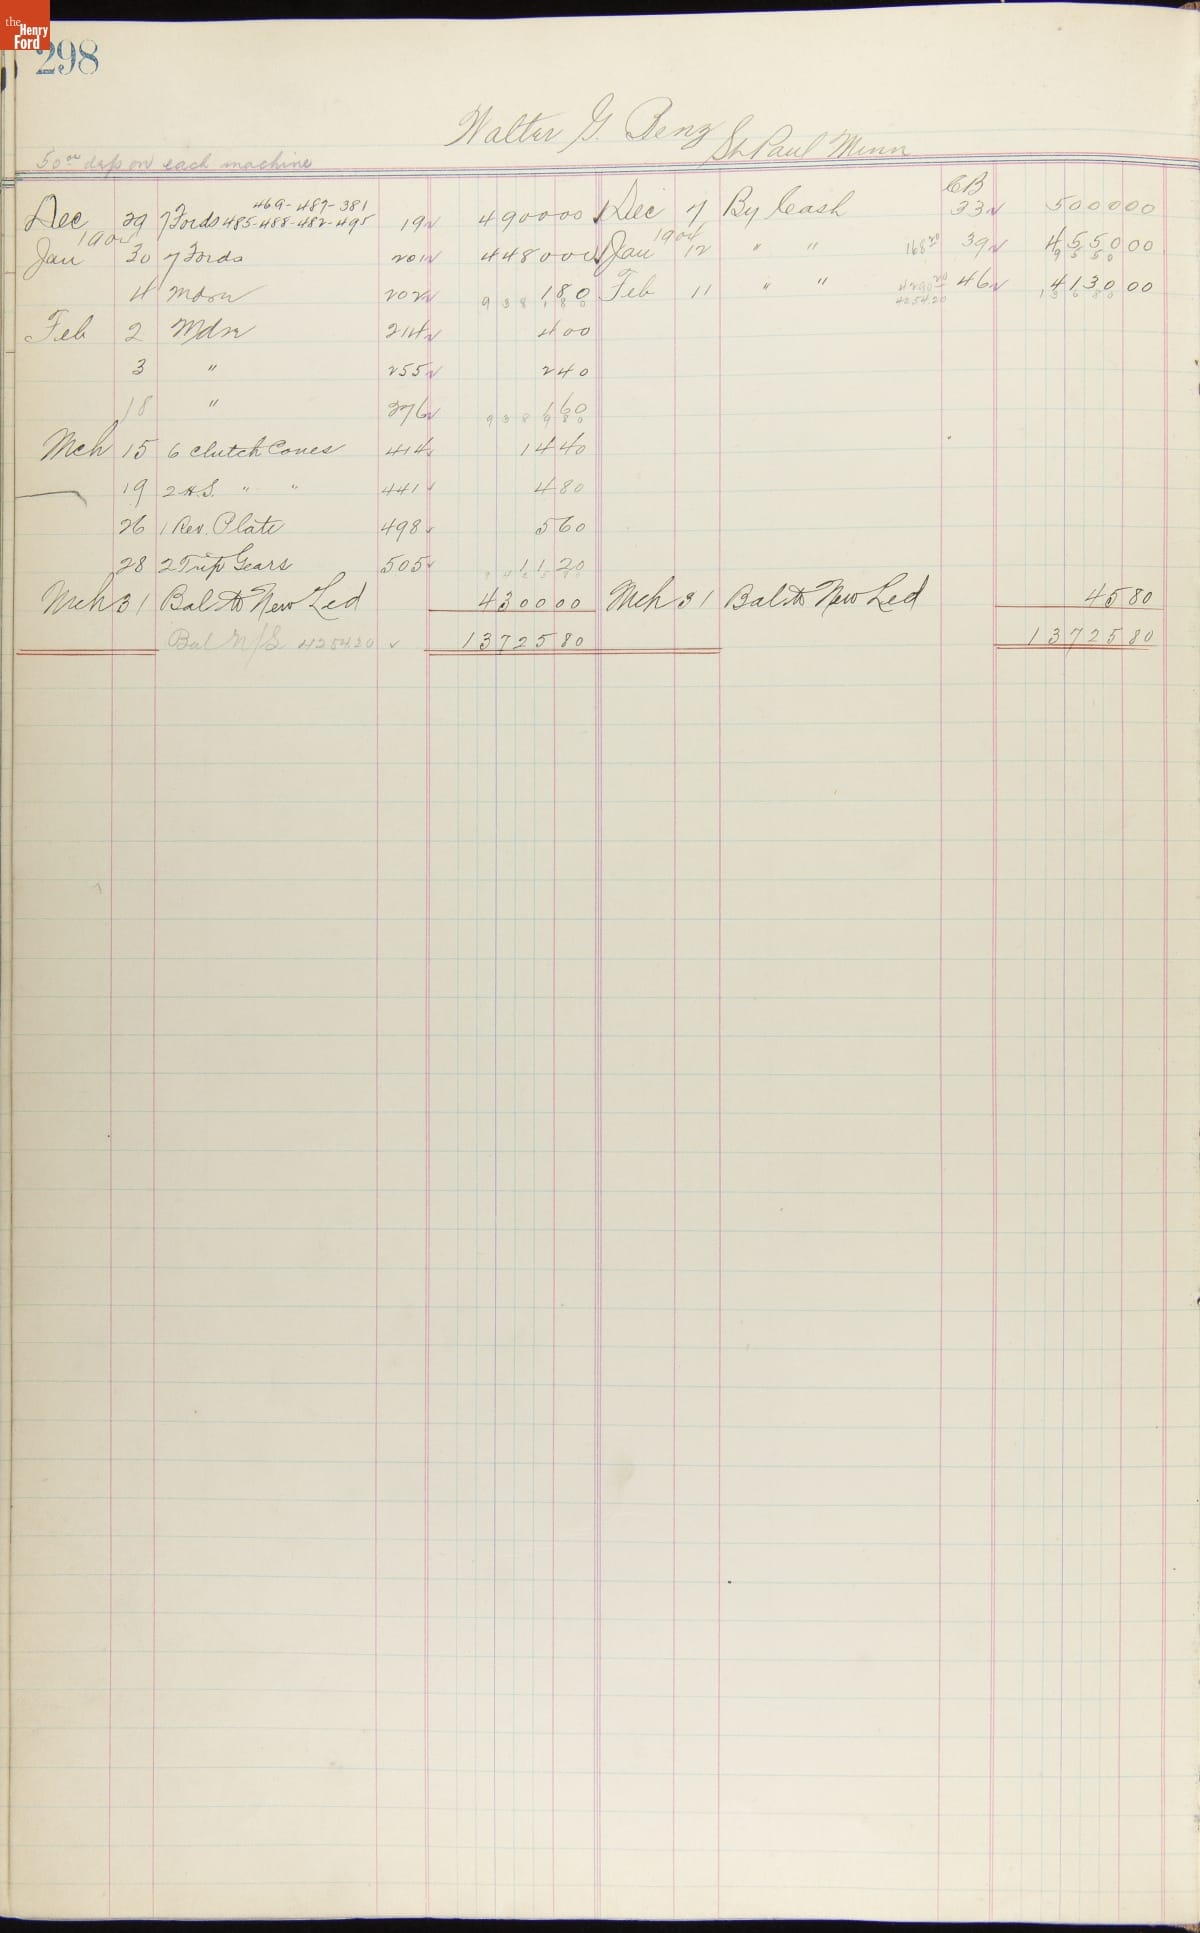 the Henry Ford
298
Walter G. Benz
St Paul Minn
50 00 dep on each machine
CB
469-487-381
Dec 29 7 Fords 485-488-482-495 19 4900 00 Dec 7 By Cash 33 5000 00
1904 1904
Jan 30 7 Fords 201 4480 00 Jan 12 " " 168 20 39 4550 00
9550
4 Mdse 202 1 80 Feb 11 " " 4290 20 46 4130 00
93818 0 4254 20 13680
Feb 2 Mdse 214 4 00
3 " 255 2 40
18 " 276 1 60
93898 0
Mch 15 6 Clutch Cones 414 14 40
19 2 H.S. " " 441 4 80
26 1 Rev. Plate 498 5 60
28 2 Trip Gears 505 11 20
Mch 31 Bal to New Led 4300 00 Mch 31 Bal to New Led 45 80
Bal 4254 20 13725 80 13725 80